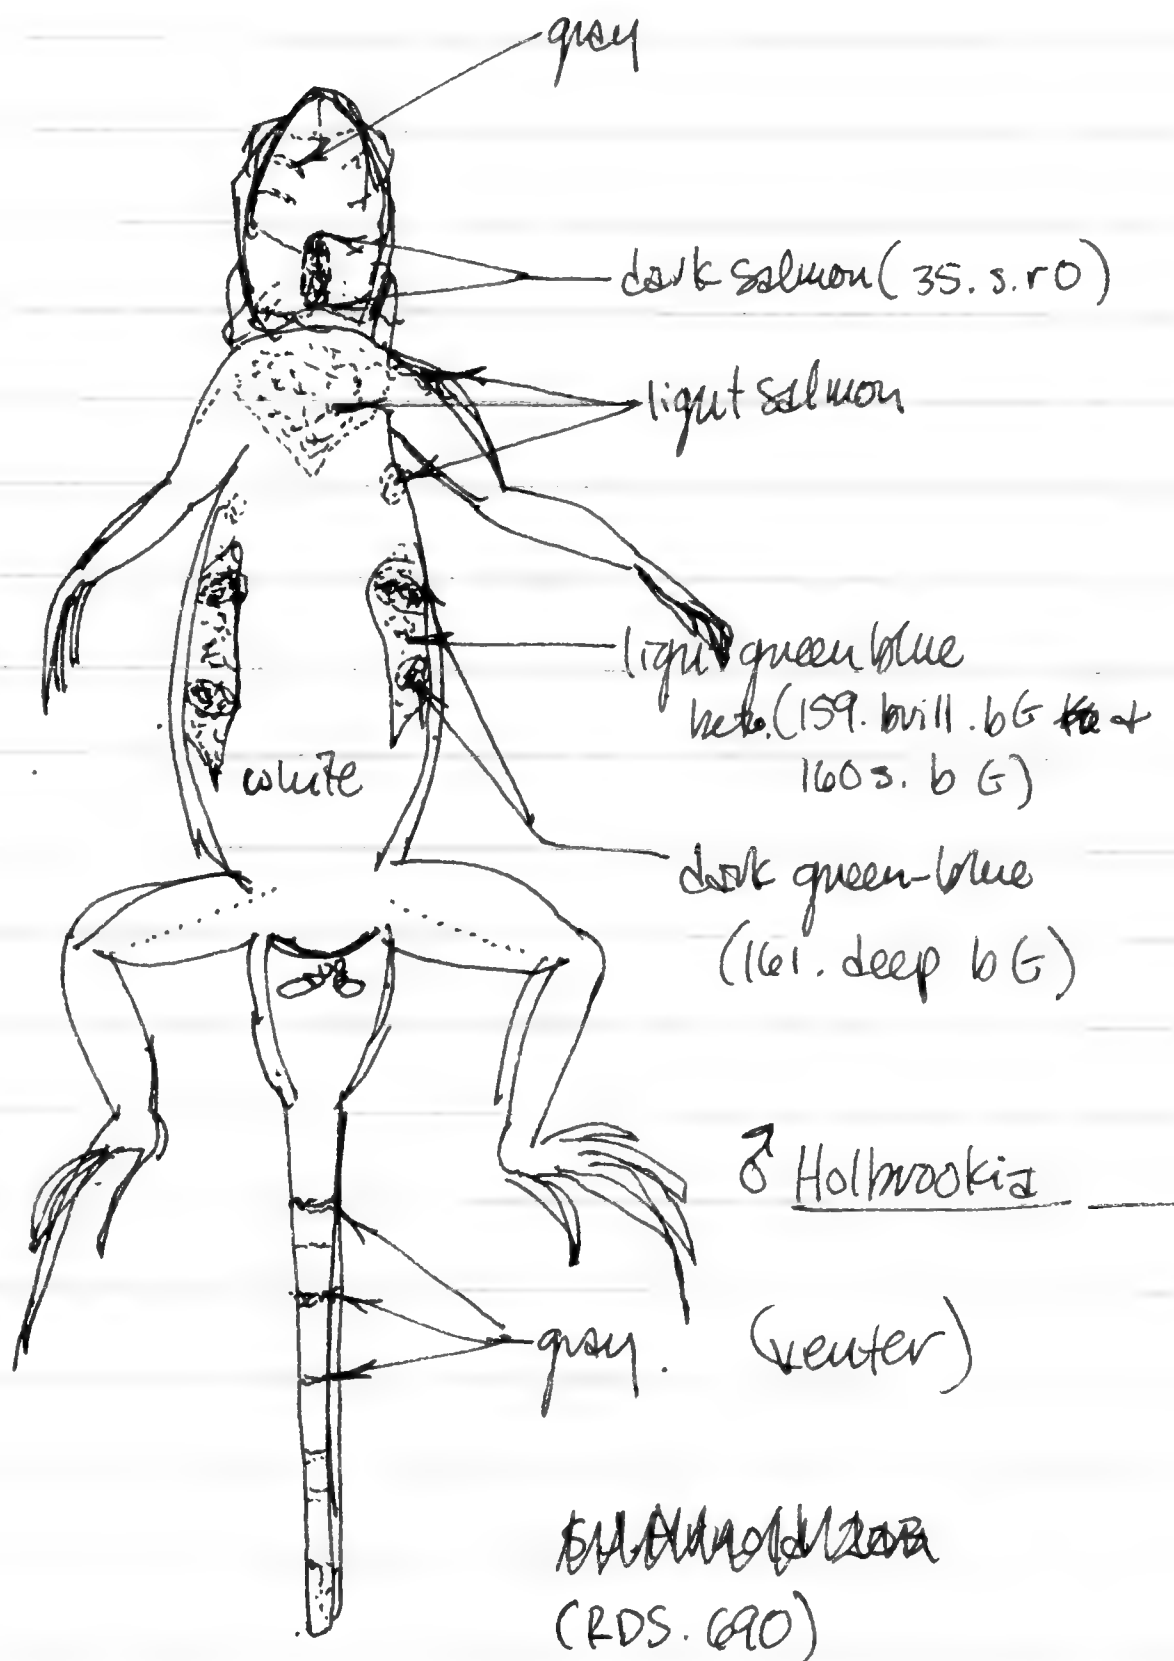 gray
dark salmon (35. s. r O)
light salmon
light green blue
(159. brill. bG +
160 s. b G)
white
dark green-blue
(161. deep b G)
♂ Holbrookia
gray.
(venter)
(RDS. 690)